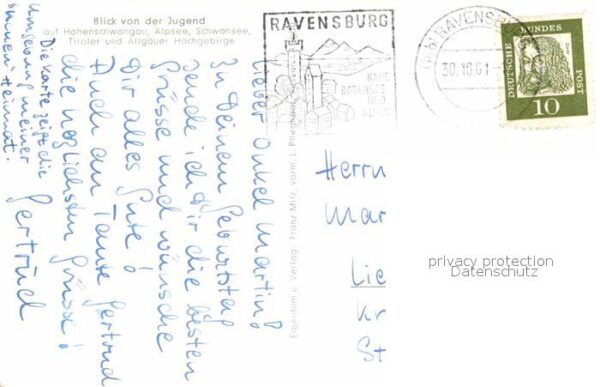 Blick von der Jugend
auf Hohenschwangau, Alpsee, Schwansee,
Tiroler und Allgäuer Hochgebirge
Lieber Onkel Martin!
Zu Deinem Geburtstag
sende ich Dir die besten
Grüsse und wünsche
Dir alles Gute!
Auch an Tante Gertrud
die herzlichsten Grüsse!
Gertrud
Die Karte zeigt die
Umgebung meiner
Heimat.
Eigentum u. Verlag: Franz Milz, vorm. L.
RAVENSBURG
NAHE
BODENSEE
UND
ALPEN
RAVENSBU
30.10.61
DEUTSCHE
BUNDES
POST
10
Herrn
Mar
Lie
Kr
St
privacy protection
Datenschutz